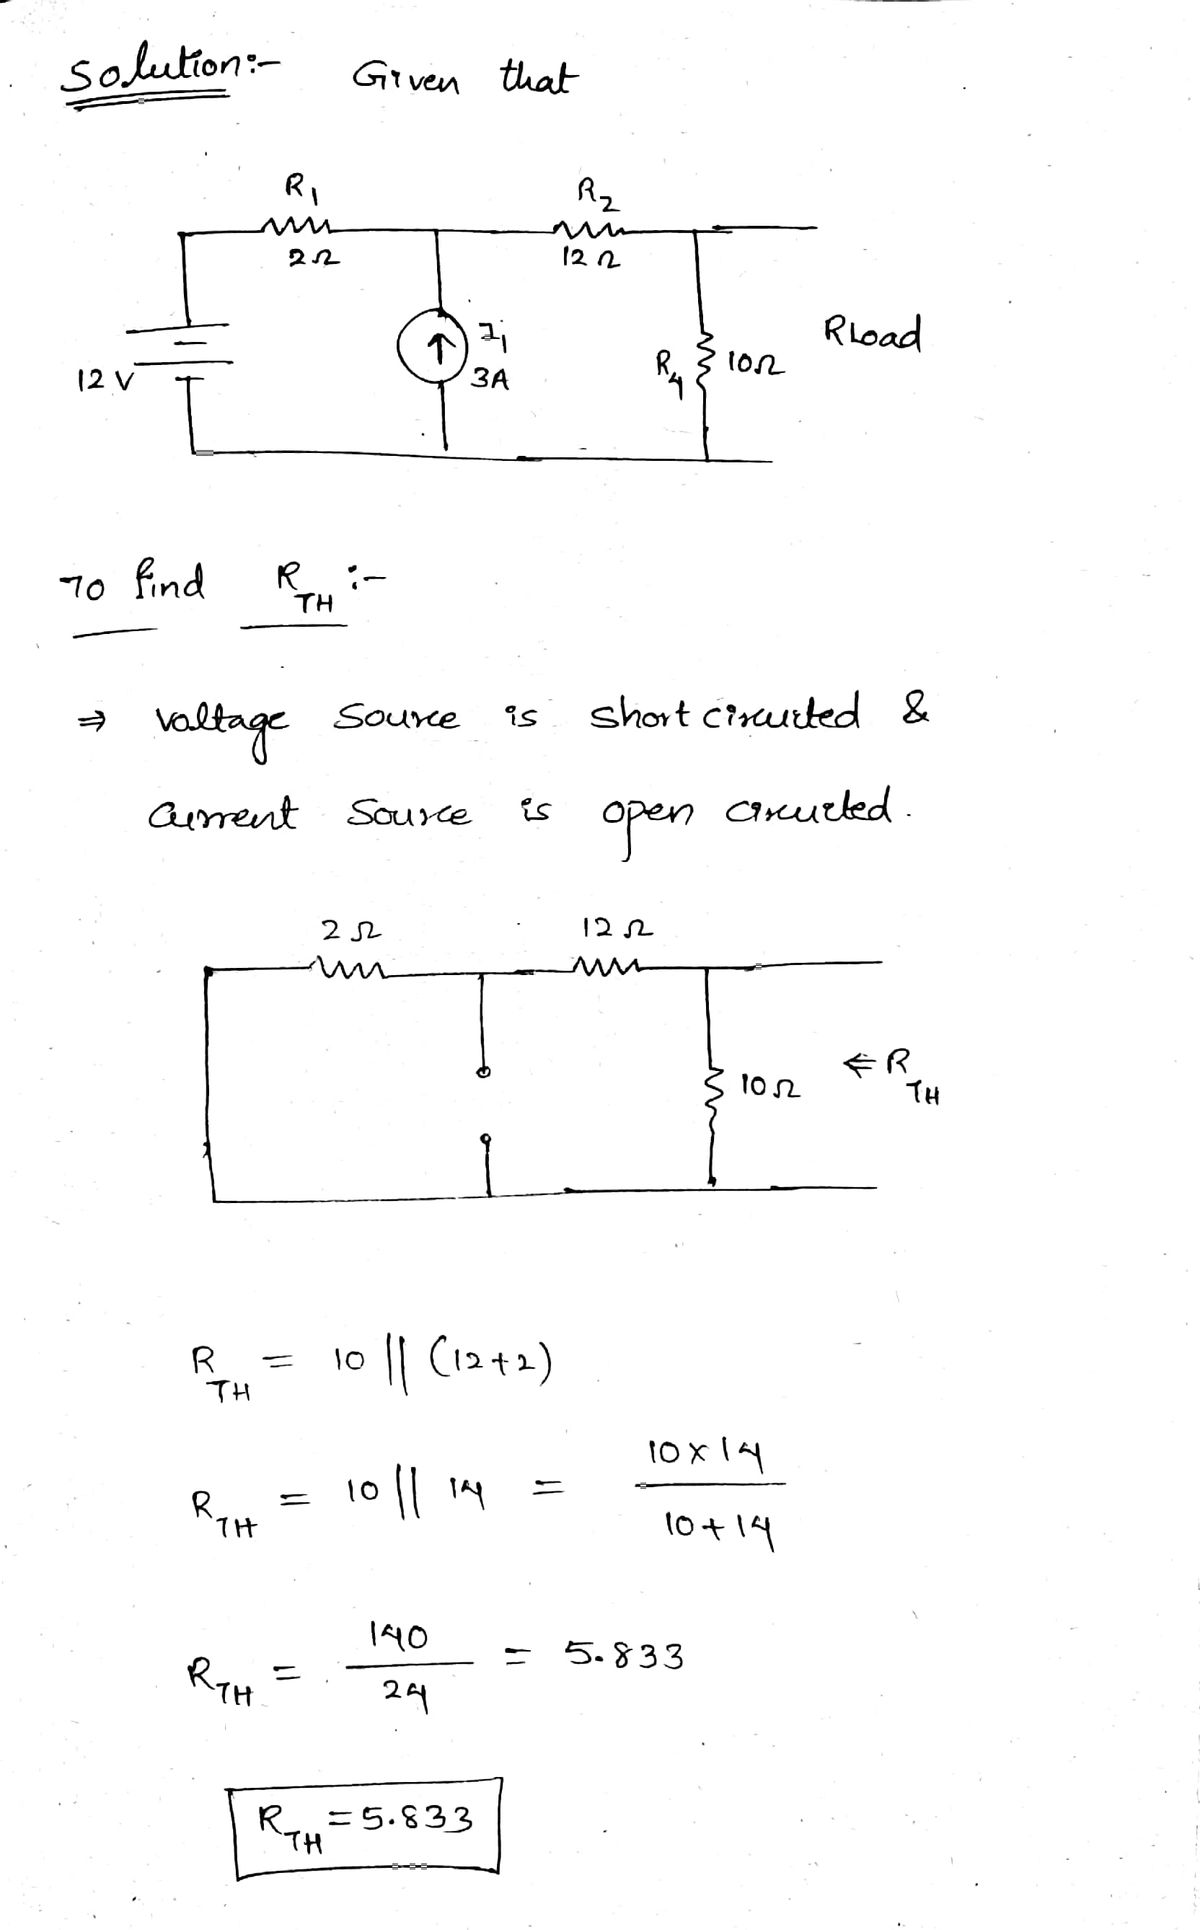 Solution:- Given that
R1 R2
2Ω 12Ω
I1 RLoad
12 V 3A R4 10Ω
To find RTH :-
⇒ Voltage Source is short circuited &
Current Source is open circuited.
2Ω 12Ω
10Ω ⇐ RTH
RTH = 10 || (12+2)
RTH = 10 || 14 = 10×14 / 10+14
RTH = 140 / 24 = 5.833
RTH = 5.833